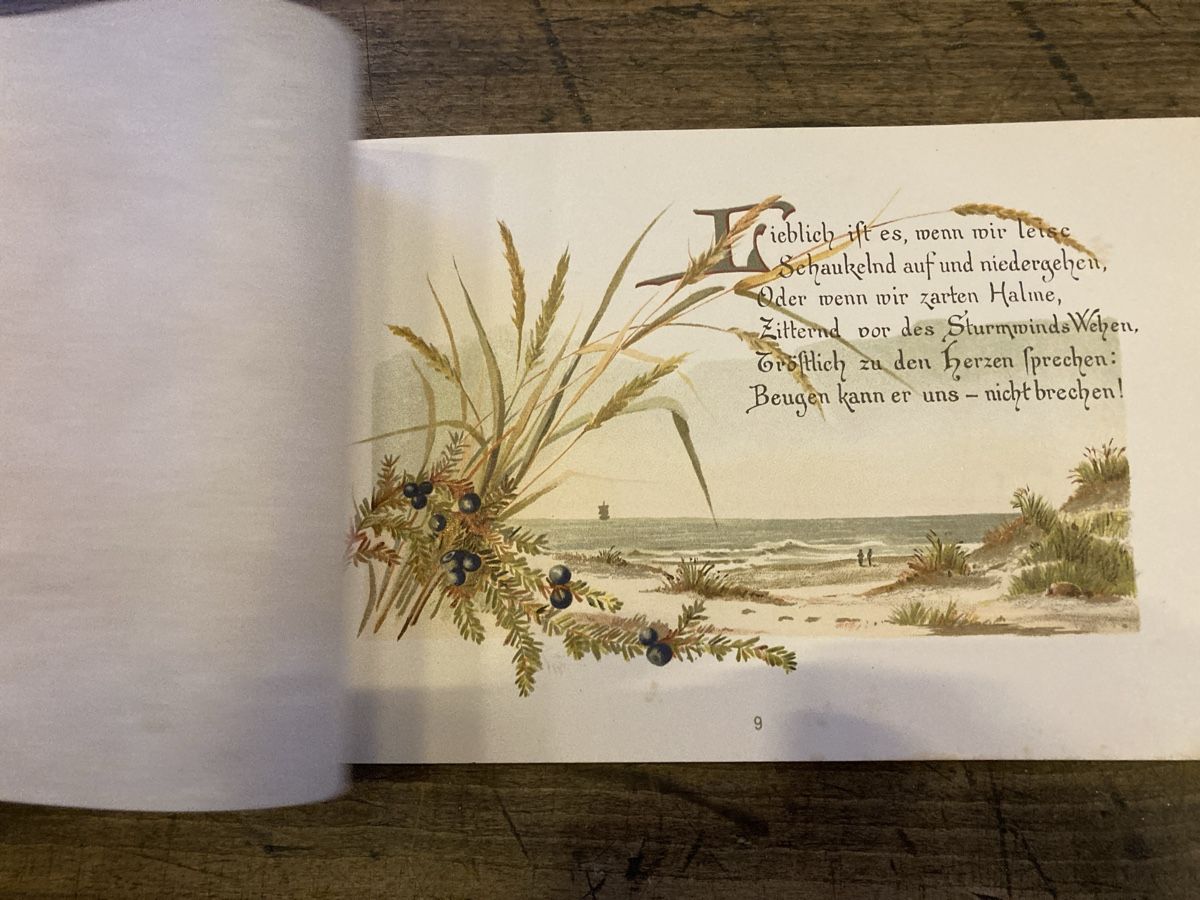 Lieblich ist es, wenn wir leise
Schaukelnd auf und niedergehen,
Oder wenn wir zarten Halme,
Zitternd vor des Sturmwinds Wehen,
Tröstlich zu den Herzen sprechen:
Beugen kann er uns – nicht brechen!
9